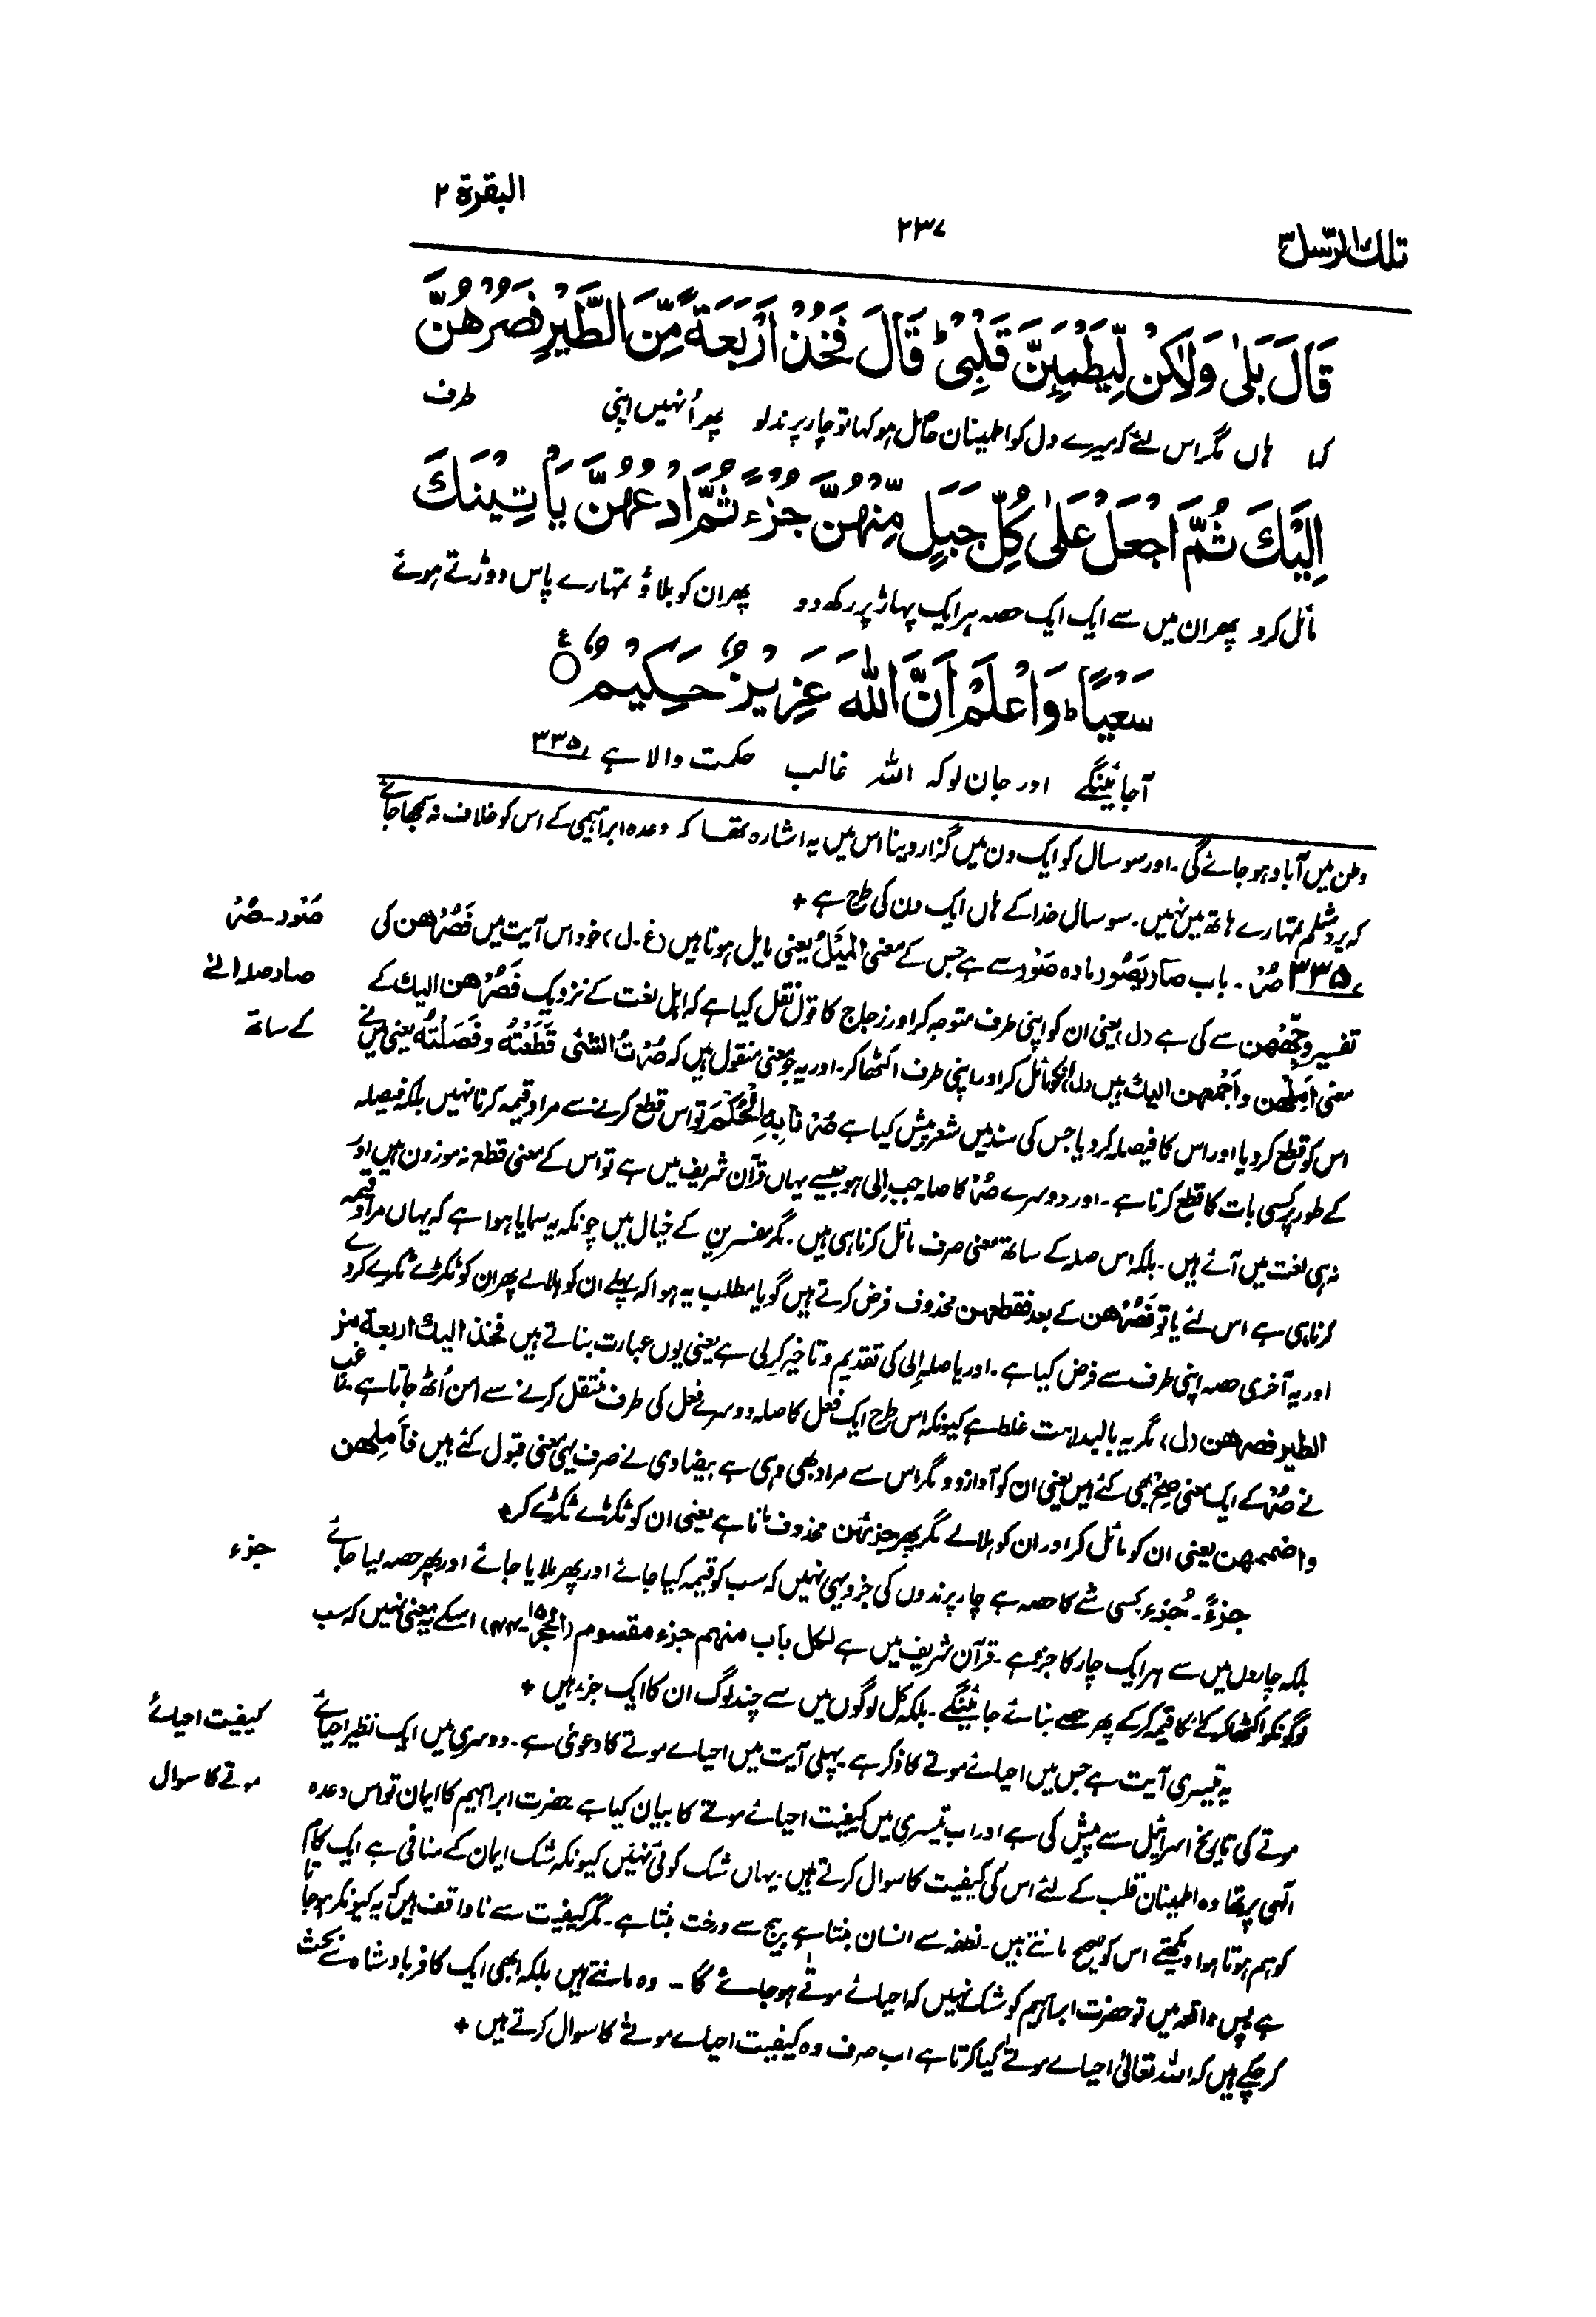 تلك الرسل ۳
۲۳۷
البقرة ۲
قَالَ بَلٰى وَلٰكِنْ لِّيَطْمَئِنَّ قَلْبِيْ ؕ قَالَ فَخُذْ اَرْبَعَةً مِّنَ الطَّيْرِ فَصُرْهُنَّ
کہا ہاں مگر اس لئے کہ میرے دل کو اطمینان حاصل ہو کہا تو چار پرند لو پھر اُنہیں اپنی طرف
اِلَيْكَ ثُمَّ اجْعَلْ عَلٰى كُلِّ جَبَلٍ مِّنْهُنَّ جُزْءً ثُمَّ ادْعُهُنَّ يَاْتِيْنَكَ
مائل کرو پھر ان میں سے ایک ایک حصہ ہر ایک پہاڑ پر رکھ دو پھر ان کو بلاؤ تمہارے پاس دوڑتے ہوئے
سَعْيًا ؕ وَاعْلَمْ اَنَّ اللّٰهَ عَزِيْزٌ حَكِيْمٌ ۟ ع
آجائینگے اور جان لو کہ اللہ غالب حکمت والا ہے ۳۳۵
وطن میں آباد ہو جائے گی۔ اور سو سال کو ایک دن میں گزار دینا اس میں یہ اشارہ تھا کہ وعدہ ابراہیمی کے اس کو خلاف نہ سمجھا جائے
کہ یروشلم تمہارے ہاتھ میں نہیں۔ سو سال خدا کے ہاں ایک دن کی طرح ہے +
صَوْر۔ صُرْ
۳۳۵ صُرْ۔ باب صَارَ يَصُوْر مادہ صَوْر سے ہے جس کے معنی المَيْلُ یعنی مایل ہونا ہیں (غ۔ل) خود اس آیت میں فَصُرْهن کی
صار صلہ الیٰ
تفسیر وَجِّهْهن سے کی ہے (ل) یعنی ان کو اپنی طرف متوجہ کر اور زجاج کا قول نقل کیا ہے کہ اہل لغت کے نزدیک فَصُرْهن اليك کے
کے ساتھ
معنی اَمِلْهن و اَجْمِعهن اليك ہیں (ل) انکو مائل کر اور اپنی طرف اکٹھا کر۔ اور یہ جو معنی منقول ہیں کہ صُرْتُ الشئ قَطَعْتُهٗ و فَصَلْتُهٗ یعنی میں نے
اس کو قطع کر دیا اور اس کا فیصلہ کر دیا جس کی سند میں شعر پیش کیا ہے صُرْنَا بِهِ الْحُكْمَ تو اس قطع کرنے سے مراد قیمہ کرنا نہیں بلکہ فیصلہ
کے طور پر کسی بات کا قطع کرنا ہے۔ اور دوسرے صُرْ کا صلہ جب اِلٰی ہو جیسے یہاں قرآن شریف میں ہے تو اس کے معنی قطع نہ موزون ہیں اور
نہ ہی لغت میں آئے ہیں۔ بلکہ اس صلہ کے ساتھ معنی صرف مائل کرنا ہی ہیں۔ مگر مفسرین کے خیال میں چونکہ یہ سمایا ہوا ہے کہ یہاں مراد قیمہ
کرنا ہی ہے اس لئے یا تو فَصُرْهن کے بعد فقطعهن محذوف فرض کرتے ہیں گویا مطلب یہ ہوا کہ پہلے ان کو ہلالے پھر ان کو ٹکڑے ٹکڑے کر دے
اور یہ آخری حصہ اپنی طرف سے فرض کیا ہے۔ اور یا صلہ اِلٰی کی تقدیم و تاخیر کر لی ہے یعنی یوں عبارت بناتے ہیں فخذ اليك اربعة من
الطير فصرهن (ل) مگر یہ بالبداہت غلط ہے کیونکہ اس طرح ایک فعل کا صلہ دوسرے فعل کی طرف منتقل کرنے سے امن اُٹھ جاتا ہے۔ راغب
نے صُرْ کے ایک معنی صِحْ بھی کئے ہیں یعنی ان کو آواز دو مگر اس سے مراد بھی وہی ہے بیضاوی نے صرف یہی معنی قبول کئے ہیں فَاَمِلْهن
واضممهن یعنی ان کو مائل کر اور ان کو ہلالے مگر پھر جزئهن محذوف مانا ہے یعنی ان کو ٹکڑے ٹکڑے کر +
جزء
جزءً۔ جُزء کسی شے کا حصہ ہے چار پرندوں کی جزو یہی نہیں کہ سب کو قیمہ کیا جائے اور پھر ملایا جائے اور پھر حصہ لیا جائے
بلکہ چاروں میں سے ہر ایک چار کا جزء ہے۔ قرآن شریف میں ہے لكل باب منهم جزء مقسوم (الحجر ۱۵۔۴۴) اسکے یہ معنی نہیں کہ سب
لوگونکو اکٹھا کر کے انکا قیمہ کر کے پھر حصے بنائے جائینگے۔ بلکہ کل لوگوں میں سے چند لوگ ان کا ایک جزء ہیں +
کیفیت احیائے
یہ تیسری آیت ہے جس میں احیائے موتے کا ذکر ہے پہلی آیت میں احیائے موتے کا دعویٰ ہے۔ دوسری میں ایک نظیر احیائے
موتے کا سوال
موتے کی تاریخ اسرائیل سے پیش کی ہے اور اب تیسری میں کیفیت احیائے موتے کا بیان کیا ہے حضرت ابراہیم کا ایمان تو اس وعدہ
الٰہی پر تھا وہ اطمینان قلب کے لئے اس کی کیفیت کا سوال کرتے ہیں۔ یہاں شک کوئی نہیں کیونکہ شک ایمان کے منافی ہے ایک کام
کو ہم ہوتا ہوا دیکھتے اس کو صحیح مانتے ہیں۔ نطفہ سے انسان بنتا ہے بیج سے درخت بنتا ہے۔ مگر کیفیت سے ناواقف ہیں کہ یہ کیونکر ہو جاتا
ہے پس واقعہ میں تو حضرت ابراہیم کو شک نہیں کہ احیائے موتٰے ہو جائے گا۔ وہ مانتے ہیں بلکہ ابھی ایک کافر بادشاہ سے بحث
کر چکے ہیں کہ اللہ تعالیٰ احیائے موتٰے کیا کرتا ہے اب صرف وہ کیفیت احیاے موتٰے کا سوال کرتے ہیں +